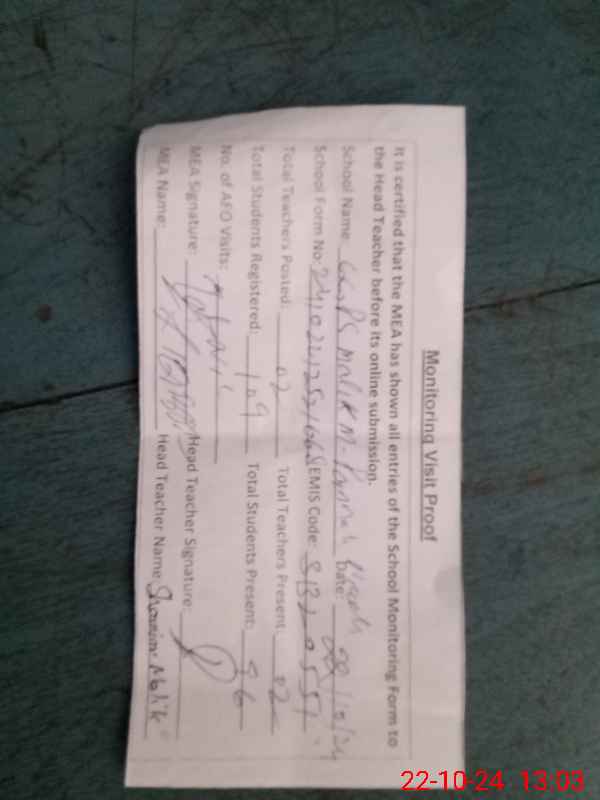 Monitoring Visit Proof
It is certified that the MEA has shown all entries of the School Monitoring Form to
the Head Teacher before its online submission.
School Name: GGPS Malik M. Date: 22/10/24
School Form No: EMIS Code:
Total Teachers Posted: 02 Total Teachers Present 02
Total Students Registered: 109 Total Students Present: 96
No. of AEO Visits:
MEA Signature: Head Teacher Signature:
MEA Name: Head Teacher Name: Malik
22-10-24 13:03